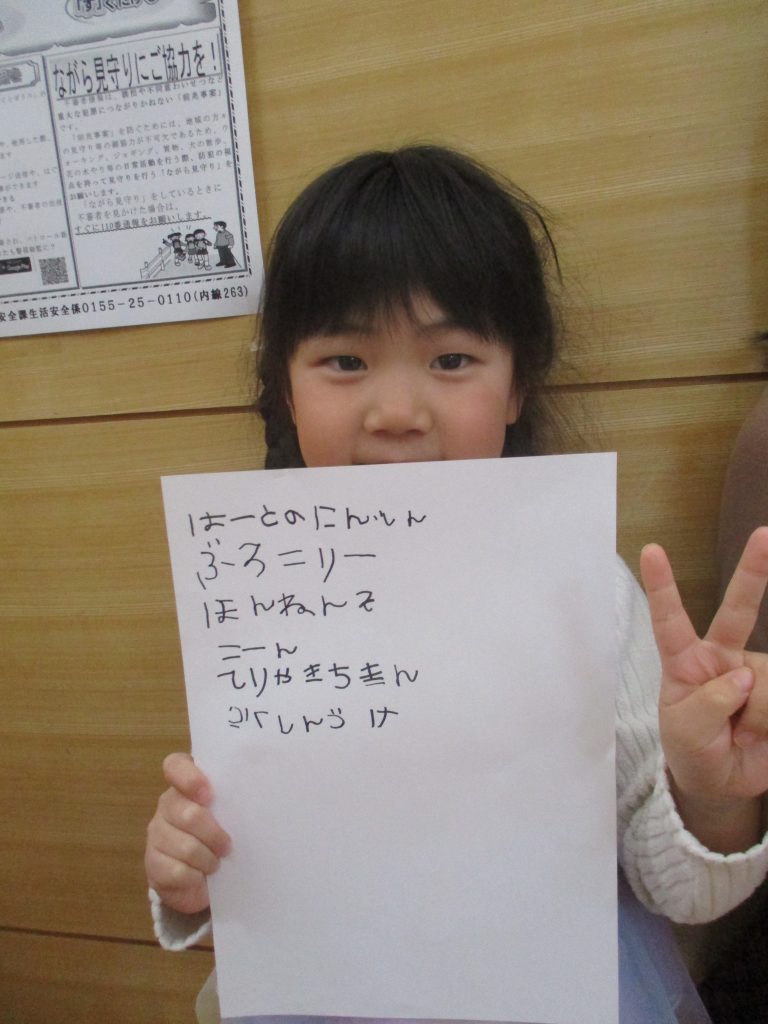 ながら見守りにご協力を!
重大な犯罪につながりかねない「前兆事案」
です。
「前兆事案」を防ぐためには、地域の方々
の見守り等の御協力が不可欠であるため、ウ
ォーキング、ジョギング、買物、犬の散歩、
花の水やり等の日常活動を行う際、防犯の視
点を持って見守りを行う「ながら見守り」を
お願いします。
「ながら見守り」をしているときに
不審者を見かけた場合は、
すぐに110番通報をお願いします。
安全課生活安全係0155-25-0110(内線263)
はーとのにんじん
ぶろこりー
ほんねんそ
こーん
てりやきちきん
ふくしんづけ